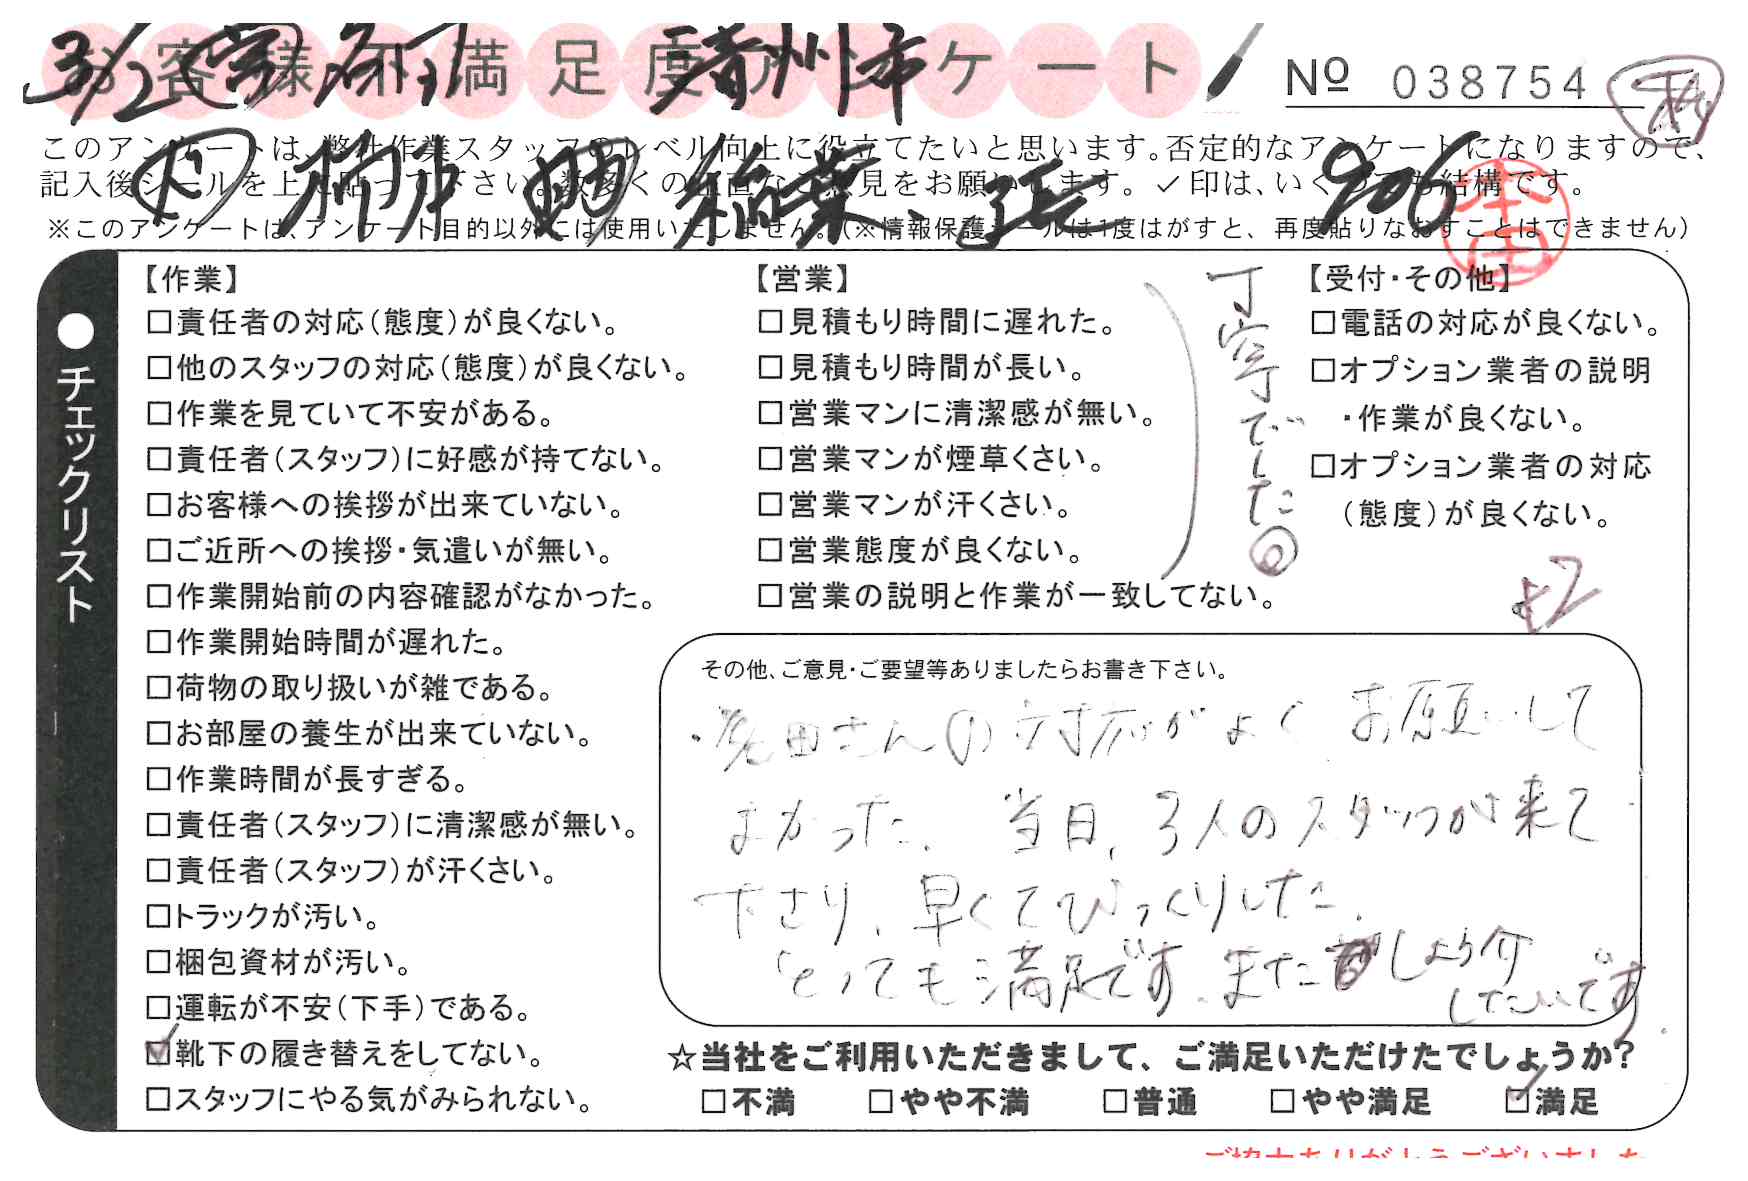 お客様不満足度アンケート
Nº 038754
3/2
このアンケートは、弊社作業スタッフのレベル向上に役立てたいと思います。否定的なアンケートになりますので、
記入後シールを上に貼って下さい。数多くの正直なご意見をお願いします。✓印は、いくつでも結構です。
※このアンケートは、アンケート目的以外には使用いたしません。(※情報保護シールは1度はがすと、再度貼りなおすことはできません)
906
本田
●チェックリスト
【作業】
□責任者の対応(態度)が良くない。
□他のスタッフの対応(態度)が良くない。
□作業を見ていて不安がある。
□責任者(スタッフ)に好感が持てない。
□お客様への挨拶が出来ていない。
□ご近所への挨拶・気遣いが無い。
□作業開始前の内容確認がなかった。
□作業開始時間が遅れた。
□荷物の取り扱いが雑である。
□お部屋の養生が出来ていない。
□作業時間が長すぎる。
□責任者(スタッフ)に清潔感が無い。
□責任者(スタッフ)が汗くさい。
□トラックが汚い。
□梱包資材が汚い。
□運転が不安(下手)である。
☑靴下の履き替えをしてない。
□スタッフにやる気がみられない。
【営業】
□見積もり時間に遅れた。
□見積もり時間が長い。
□営業マンに清潔感が無い。
□営業マンが煙草くさい。
□営業マンが汗くさい。
□営業態度が良くない。
□営業の説明と作業が一致してない。
丁寧でした◎
【受付・その他】
□電話の対応が良くない。
□オプション業者の説明
・作業が良くない。
□オプション業者の対応
(態度)が良くない。
±2
その他、ご意見・ご要望等ありましたらお書き下さい。
田さんの対応がよく お願いして
よかった。当日、3人のスタッフが来て
下さり、早くてびっくりした。
とっても満足です。また しょう介
したいです
☆当社をご利用いただきまして、ご満足いただけたでしょうか?
□不満 □やや不満 □普通 □やや満足 ☑満足
ご協力ありがとうございました